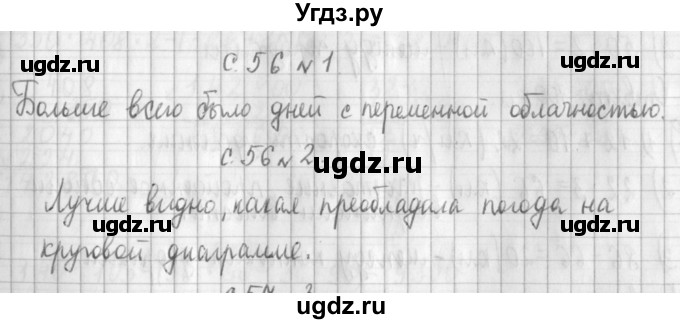 Угдз.ру
с. 56 № 1
Больше всего было дней с переменной облачностью.
с. 56 № 2
Лучше видно, какая преобладала погода на
круговой диаграмме.
ugdz.ru
ugdz.ru
ugdz.ru
ugdz.ru
ugdz.ru
ugdz.ru
ugdz.ru
ugdz.ru